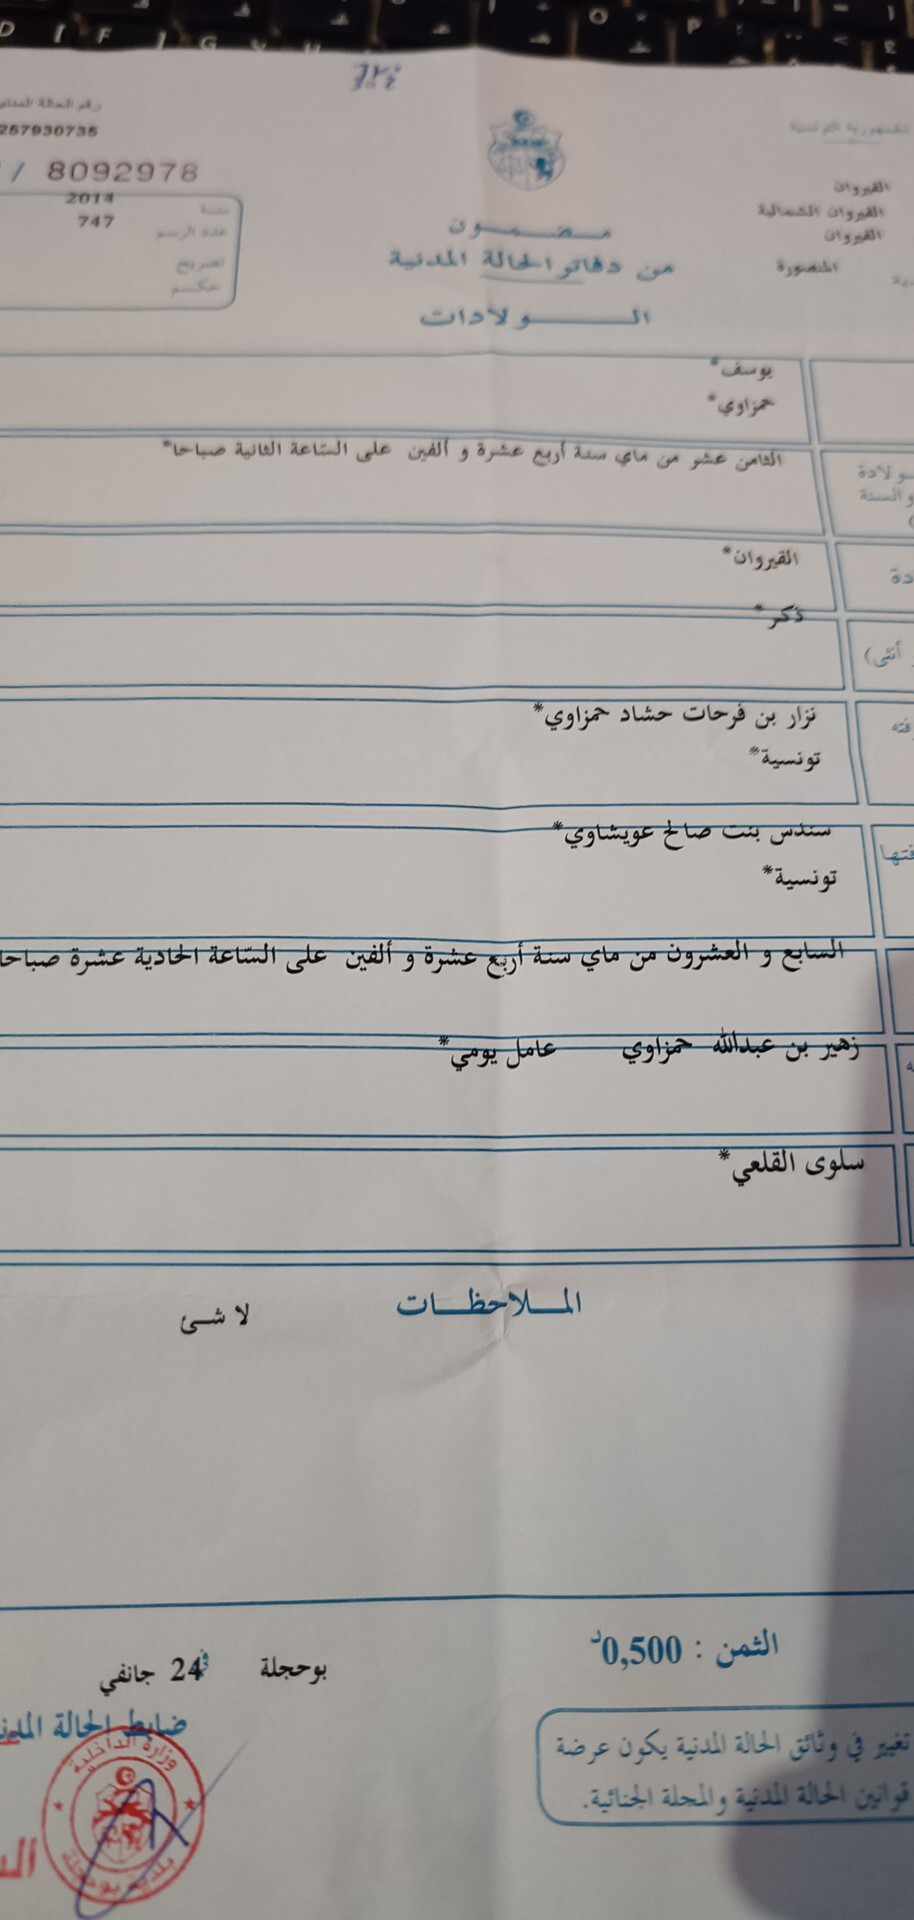 رقم الحالة المدنية
257930735
الجمهورية التونسية
/ 8092978
القيروان
القيروان الشمالية
القيروان
المنصورة
سنة 2014
عدد الرسم 747
تصريح
حكم
مضمون
من دفاتر الحالة المدنية
الولادات
يوسف*
حمزاوي*
الثامن عشر من ماي سنة أربع عشرة و ألفين على السّاعة الثانية صباحا*
ولادة
و السنة
القيروان*
دة
ذكر*
أنثى)
نزار بن فرحات حشاد حمزاوي*
تونسية*
سندس بنت صالح عويشاوي*
تونسية*
السابع و العشرون من ماي سنة أربع عشرة و ألفين على السّاعة الحادية عشرة صباحا
زهير بن عبدالله حمزاوي عامل يومي*
سلوى القلعي*
الملاحظات
لا شئ
الثمن : 0,500د
بوحجلة في 24 جانفي
ضابط الحالة المدنية
تغيير في وثائق الحالة المدنية يكون عرضة
قوانين الحالة المدنية والمجلة الجنائية.
وزارة الداخلية
بلدية بوحجلة